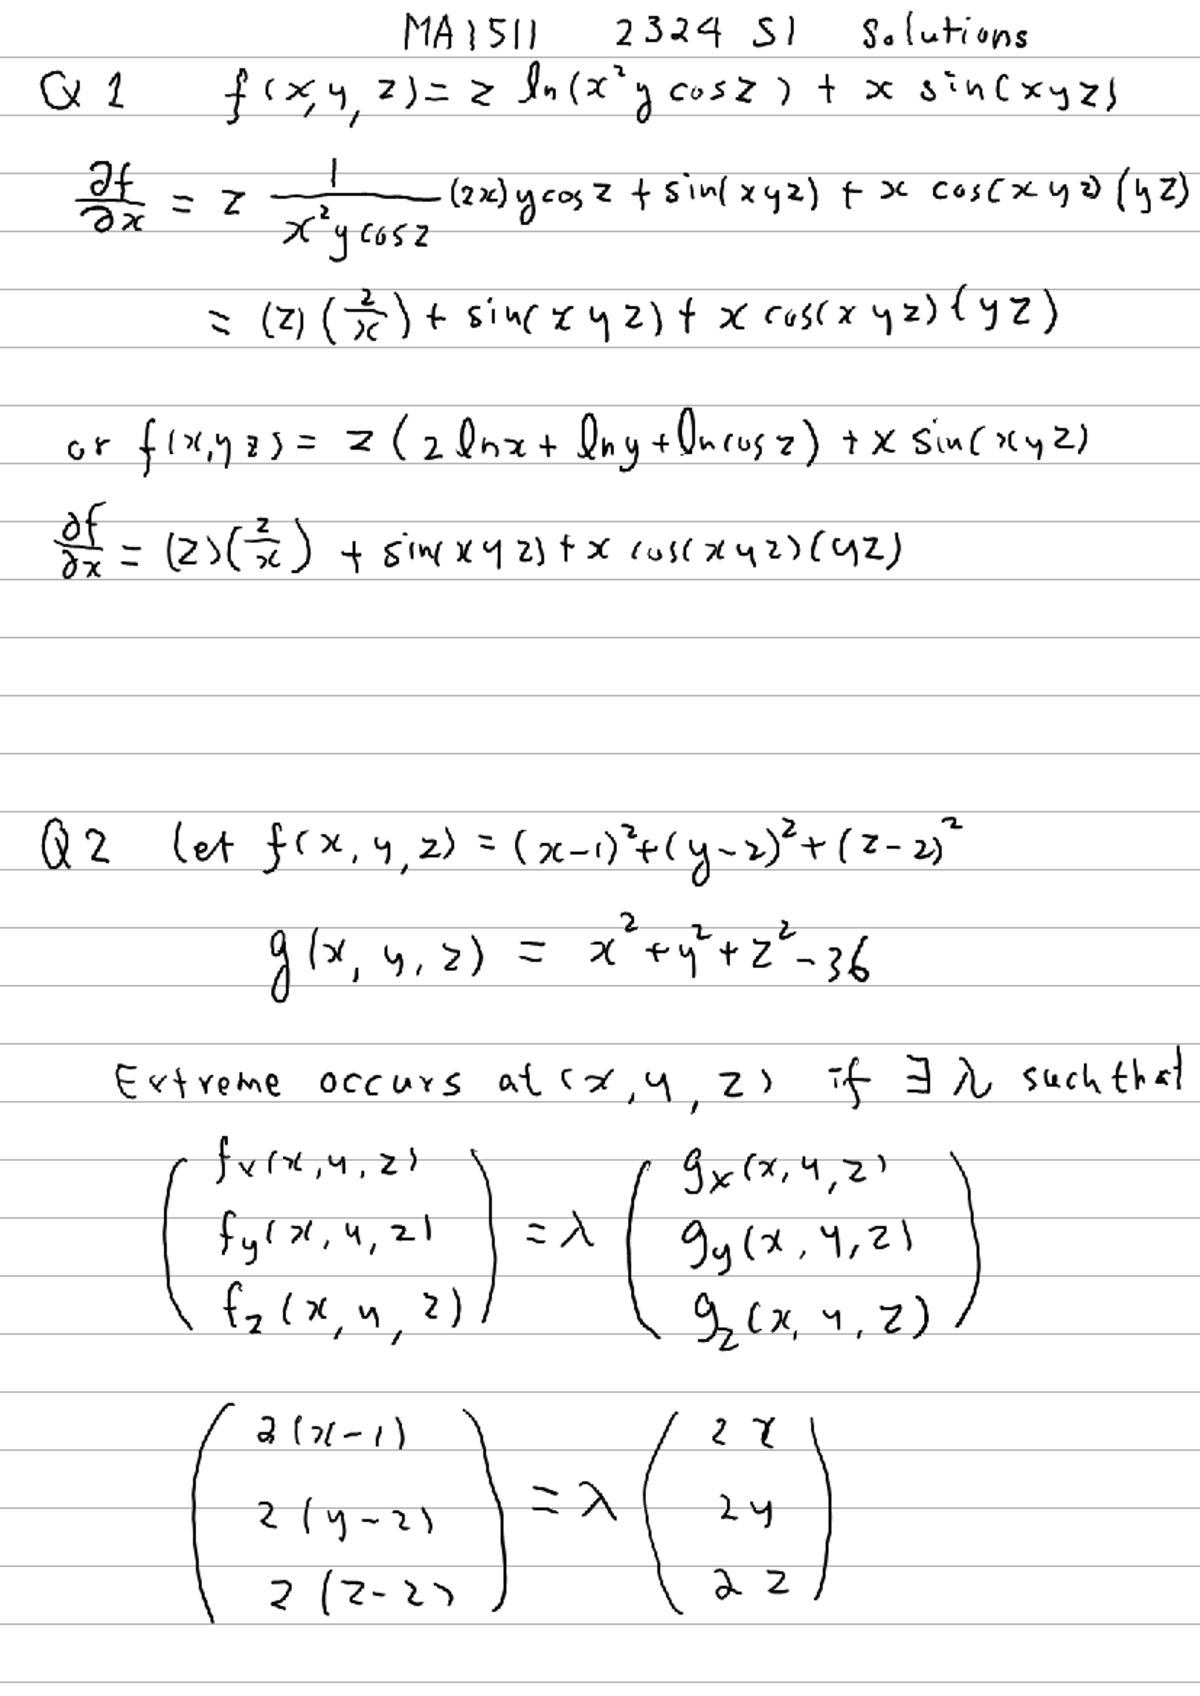 MA1511 2324 S1 Solutions
Q1 f(x, y, z) = z ln(x²y cos z) + x sin(xyz)
∂f/∂x = z 1/(x²y cos z) (2x) y cos z + sin(xyz) + x cos(xyz)(yz)
= (z)(2/x) + sin(xyz) + x cos(xyz)(yz)
or f(x,y z) = z(2 ln x + ln y + ln cos z) + x sin(xyz)
∂f/∂x = (z)(2/x) + sin(xyz) + x cos(xyz)(yz)
Q2 let f(x, y, z) = (x-1)²+(y-2)²+(z-2)²
g(x, y, z) = x²+y²+z²-36
Extreme occurs at (x, y, z) if ∃ λ such that
(f_x(x, y, z) f_y(x, y, z) f_z(x, y, z)) = λ (g_x(x, y, z) g_y(x, y, z) g_z(x, y, z))
(2(x-1) 2(y-2) 2(z-2)) = λ (2x 2y 2z)